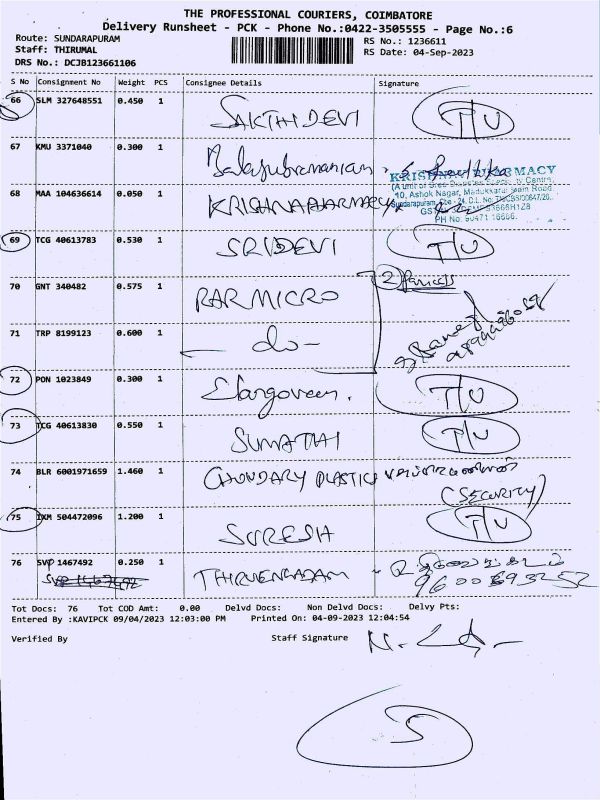 THE PROFESSIONAL COURIERS, COIMBATORE
Delivery Runsheet - PCK - Phone No.:0422-3505555 - Page No.:6
Route: SUNDARAPURAM
RS No.: 1236611
Staff: THIRUMAL
RS Date: 04-Sep-2023
DRS No.: DCJB123661106
S No Consignment No Weight PCS Consignee Details Signature
66 SLM 327648551 0.450 1 SAKTHI DEVI T/U
67 KMU 3371040 0.300 1 Balasubramaniam
KRISHNA PHARMACY
10, Ashok Nagar, Madukkarai Main Road
68 MAA 104636614 0.050 1 KRISHNAPHARMACY
69 TCG 40613783 0.530 1 SRIDEVI T/U
70 GNT 340482 0.575 1 RAR MICRO 2 Parcels
71 TRP 8199123 0.600 1 - do -
72 PON 1023849 0.300 1 Elangovan. T/U
73 TCG 40613830 0.550 1 SUMATHI T/U
74 BLR 6001971659 1.460 1 CHOUDARY PLASTIC
(SECURITY)
75 IXM 504472096 1.200 1 SURESH T/U
76 SVP 1467492 0.250 1 THIRUVENGADAM
9600693252
Tot Docs: 76 Tot COD Amt: 0.00 Delvd Docs: Non Delvd Docs: Delvy Pts:
Entered By :KAVIPCK 09/04/2023 12:03:00 PM Printed On: 04-09-2023 12:04:54
Verified By Staff Signature
5